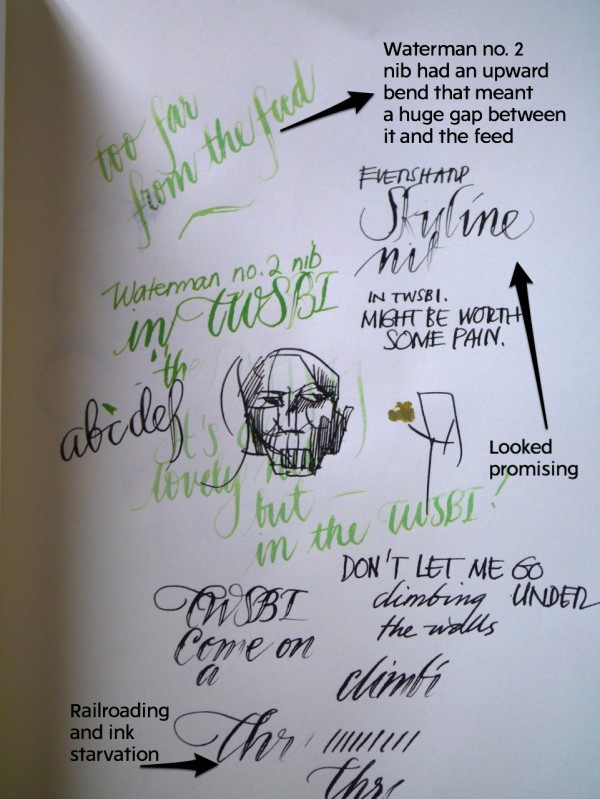 too far
from the feed
Waterman no. 2
nib had an upward
bend that meant
a huge gap between
it and the feed
EVERSHARP
Skyline
nib
IN TWSBI.
MIGHT BE WORTH
SOME PAIN.
Waterman no. 2 nib
in TWSBI
the
abcdef
It's
lovely
but
in the TWSBI!
Looked
promising
DON'T LET ME GO
UNDER
climbing
the walls
climbi
TWSBI
Come on
a
Railroading
and ink
starvation
Thr
thr